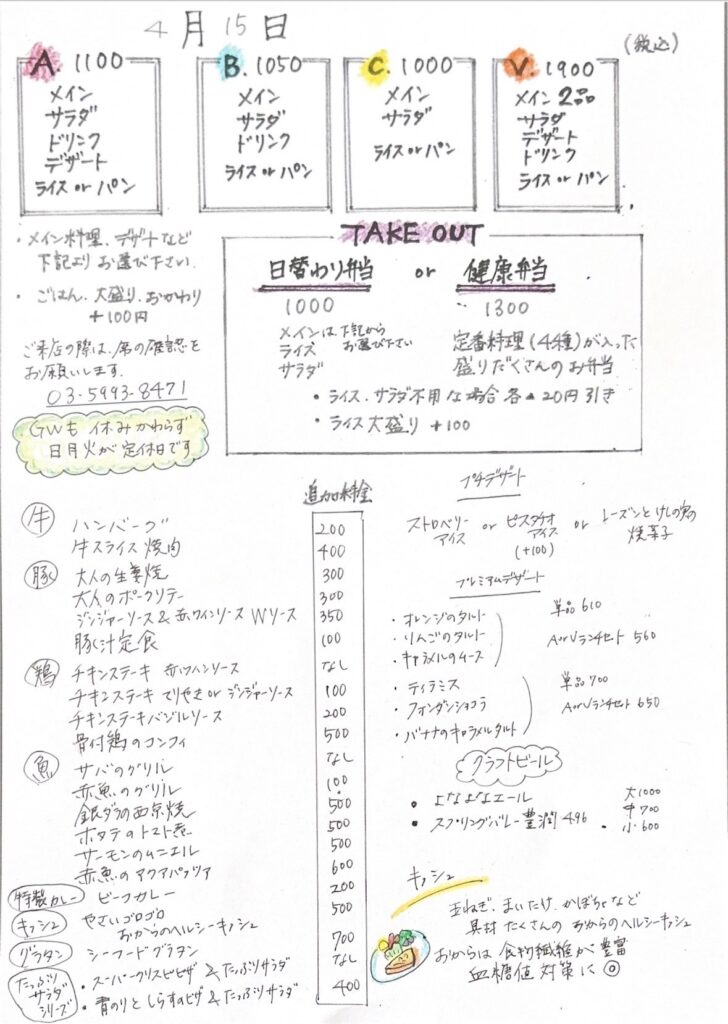 4月15日
(税込)
A. 1100
メイン
サラダ
ドリンク
デザート
ライス or パン
B. 1050
メイン
サラダ
ドリンク
ライス or パン
C. 1000
メイン
サラダ
ライス or パン
V. 1900
メイン 2品
サラダ
デザート
ドリンク
ライス or パン
・メイン料理、デザートなど
下記よりお選び下さい。
・ごはん、大盛り、おかわり
+100円
ご来店の際は、席の確認を
お願いします。
03-5993-8471
GWも休みかわらず
日月火が定休日です
TAKE OUT
日替わり弁当 or 健康弁当
1000
メインは、下記から
お選び下さい
ライス
サラダ
1300
定番料理(4種)が入った
盛りだくさんのお弁当
・ライス、サラダ不用な場合 各▲20円引き
・ライス大盛り +100
追加料金
牛
ハンバーグ 200
牛スライス焼肉 400
豚
大人の生姜焼 300
大人のポークソテー 300
ジンジャーソース&赤ワインソース Wソース 350
豚汁定食 100
鶏
チキンステーキ 赤ワインソース なし
チキンステーキ てりやき or ジンジャーソース 100
チキンステーキバジルソース 200
骨付鶏のコンフィ 500
魚
サバのグリル なし
赤魚のグリル 100
銀ダラの西京焼 500
ホタテのトマト煮 500
サーモンのムニエル 500
赤魚のアクアパッツァ 600
特製カレー ビーフカレー 200
キッシュ やさいゴロゴロ 500
おからのヘルシーキッシュ
グラタン シーフードグラタン 700
たっぷり
サラダ
シリーズ
・スーパークリスピピザ & たっぷりサラダ なし
・青のりとしらすのピザ & たっぷりサラダ 400
プチデザート
ストロベリー
アイス
or
ピスタチオ
アイス
(+100)
or
レーズンとけしの実の
焼菓子
プレミアムデザート
・オレンジのタルト
・りんごのタルト
・キャラメルのムース
単品 610
A or Vランチセット 560
・ティラミス
・フォンダンショコラ
・バナナのキャラメルタルト
単品 700
A or Vランチセット 650
クラフトビール
・よなよなエール
・スプリングバレー 豊潤 496
大1000
中700
・小・600
キッシュ
玉ねぎ、まいたけ、かぼちゃなど
具材たくさんのおからのヘルシーキッシュ
おからは食物繊維が豊富
血糖値対策に◎